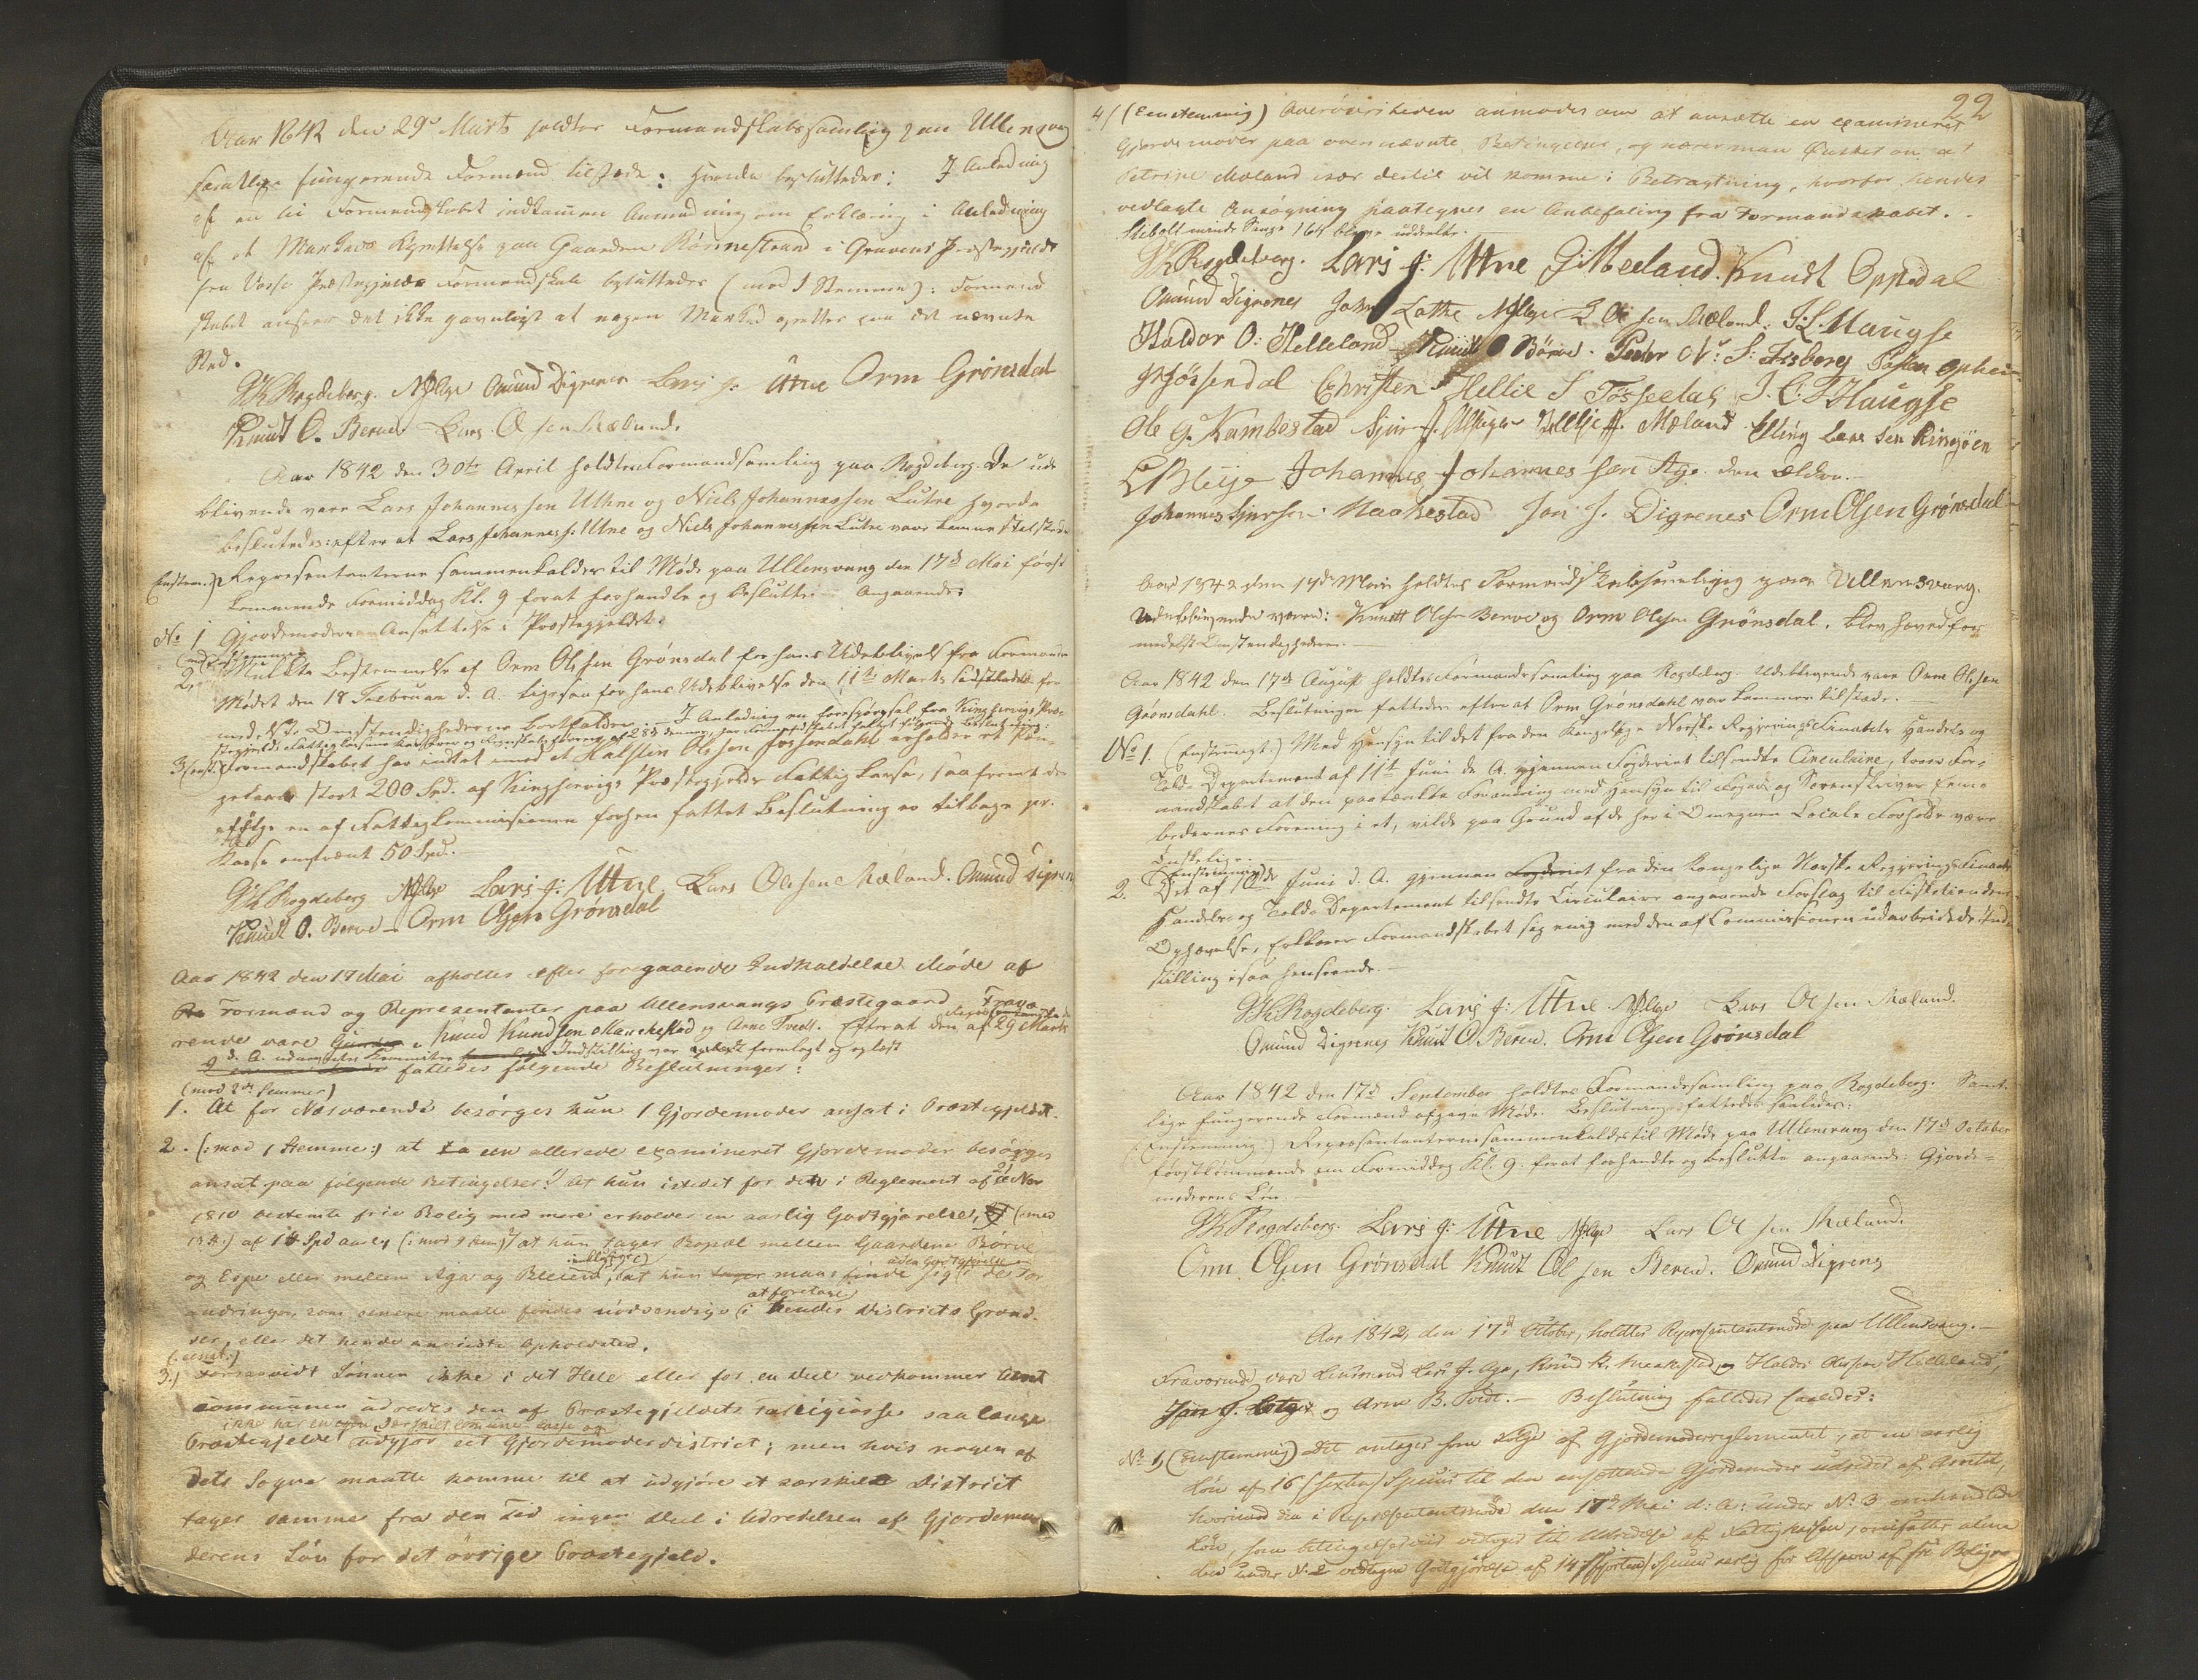 Aar 1842 den 29de Marts holdtes Formandskabssamling paa Ullensvang
samtlige fungerende Formænd tilstede; hvorda besluttedes: I Anledning
af en til Formandskabet indkommen Anmodning om Erklæring i Anledning
af et Markeds Oprettelse paa Gaarden Rønnestrand i Gravens Præstegjeld
fra Vosse Præstegjelds Formandskab besluttedes (mod 1 Stemme): Formand
skabet anseer det ikke gavnligt at nogen Marked oprettes paa det nævnte
Sted.
Rogdeberg. Omund Digrenes Lars J. Utne Orm Grønsdal
Knut O. Berve Lars Olsen Mæland.
Aar 1842 den 30te April holdtes Formandsamling paa Rogdeberg. De ude
blivende vare Lars Johannessen Uthne og Niels Johannessen Lutro hvorda
besluttedes: efter at Lars Johanness: Utne og Niels Johannessen Lutro vare kommen tilstede
Enstem.) Repræsentanterne sammenkaldes til Møde paa Ullensvang den 17de Mai først
kommende Formiddag Kl. 9 for at forhandle og beslutte Angaaende:
No 1 Gjordemoderens Ansættelse i Præstegjeldet.
2. Mulkts Bestemmelse af Orm Olsen Grønsdal for hans Udeblivelse fra Formands
Mødet den 18 Februar d. A. ligesaa for hans Udeblivelse den 11te Marts sidstleden for
medelst Omstændighederne bortfalder. I Anledning en Forespørgsel fra Kingservigs Præ-
3. Formandskabet har indtet imod at Halstein Olsen Jossendahl erholder et Pen-
gelaan stort 200 Spd. af Kingservigs Præstegjelds Fattigkasse, saafremt der
ifølge en af Fattigkommissionen forhen fattet Beslutning er tilbage pr.
Kasse omtrent 50 Spd.
Rogdeberg Lars J: Utne. Lars Olsen Mæland. Omund Digrenes
Knudt O. Berve Orm Olsen Grønsdal
Aar 1842 den 17 Mai afholdtes efter foregaaende Indkaldelse Møde af
Formænd og Repræsentanter paa Ullensvangs Præstegaard Fravæ
rende vare Knud Kundsen Maackestad og Arne Tvedt. Efterat den af 29 Marts
d. A. udnævnte Kommites Indstilling var fremlagt og oplæst
fattedes følgende Beslutninger:
(mod 2de stemmer)
1. At for Nærværende besørges kun 1 Gjordemoder ansat i Præstegjeldet.
2. (:mod 1 Stemme:) at en allerede examineret Gjordemoder besørges
ansat paa følgende Betingelser: 1) At hun istedet for den i Reglement af 21 Nov
1810 bestemte frie Bolig med mere erholder en aarlig Godtgjørelse, (mod
af 14 Spd aarlig (: mod 9 stem) at hun tager Bopæl mellem Gaardene Børve
inklusive)
og Espe eller mellem Aga og Bleien, at hun maa finde sig i de For
uden Godtgjørelse
at foretage
andringer, som senere maatte findes nødvendige i hendes Districts Grænd-
ser, eller det hende anviste Opholdsted.
(:eenst:)
3) Forsaavidt Lønnen ikke i det Hele eller for en Deel vedkommer Amt
communen udredes den af Præstegjeldets Fattigcasse saalænge
ikke har en egen særskilt Comune Casse og
Præstegjeldet udgjør eet Gjordemoderdistrict; men hvis nogen af
dets Sogne maatte komme til at udgjøre et særskilt District
tager samme fra den Tid ingen Deel i Udredelsen af Gjordemo
derens Løn for det øvrige Præstegjeld.
22
4/ (Eenstemmig) Øverøvrigheden anmodes om at ansætte en examineret
Gjordemoder paa ovennævnte Betingelser, og nærer man Ønsket om at
Petrine Meland især dertil vil komme i Betragtning, hvorfor hendes
vedlagte Ansøgning paategnes en Anbefaling fra Formandskabet.
Rogdeberg. Lars J: Utne G: Meeland. Knudt Oppedal
Omund Digrenes John Lothe L Olsen Mæland. J: L: Haugse
Haldor O: Helleland Knudt O Børve. Peder N: S: Eisberg Opheim
Jøssendal Christen Hellie S Tosseelas J. C. Haugse
Ole G. Kambestad Mæland Elling Larssen Ringøen
Johannes Johannes sen Age den ældre.
Johannes Sjursen Maakestad Jon J. Digrenes Orm Olsen Grønsdal
Aar 1842 den 17de Mai holdtes Formandskabssamling paa Ullensvang.
Udeblivende vare: Knudt Olsen Berve og Orm Olsen Grønsdal, blev hævet for
medelst Omstendigheder.
Aar 1842 den 17de August holdtes Formandssamling paa Rogdeberg. Udeblivende vare Orm Olsen
Grønsdahl. Beslutninger fattedes efter at Orm Grønsdahl var kommen tilstæde.
No 1. (Enstemigt.) Med Hensyn til det fra den Kongelige Norske Regjerings Finants Handels og
Told Departement af 11te Juni d. A. gjennem Fogderiet tilsendte Circulaire, troer For-
mandskabet at den paatænkte Forandring med Hensyn til Fogde og Sorenskriver Em-
bedernes Forening i et, vilde paa Grund af de her i Omegnen Locale Forholde være
Ønskelige.
(Enstemmig)
2. Det af Juni d. A. gjennem Fogderiet fra den Kongelige Norske Regjerings Finants
Handels og Told Departement tilsendte Circulaire angaaende Forslag til Fisketiendens
Ophævelse, Erklærer Formandskabet sig enig med den af Commissionen udarbeidede Ind-
stilling i saa Henseende.
Rogdeberg. Lars J: Utne Lars Olsen Mæland.
Omund Digrenes Knudt O Berve. Orm Olsen Grønsdal
Aar 1842 den 17de September holdtes Formandssamling paa Rogdeberg. Samt-
lige fungerende Formænd afgave Møde. Beslutninger fattedes saaledes:
(Enstemmig) Repræsentanterne sammenkaldes til Møde paa Ullensvang den 17de October
førstkommende om Formiddag Kl. 9. for at forhandle og beslutte angaaende: Gjorde-
moderens Løn.
Rogdeberg. Lars J: Utne Lars Olsen Mæland.
Orm Olsen Grønsdal Knudt Olsen Berve. Omund Digrenes
Aar 1842, den 17de October, holdtes Repræsentantmøde paa Ullensvang.
Fraværende vare Lensmand Lars J. Aga, Knud K. Maakestad og Haldor Olsen Helleland,
Jon J. og Arne B. Tvedt. Beslutning fattedes saaledes:
No 1, (Eenstemmig) Det antages som Følge af Gjordemoderreglementet, at en aarlig
Løn af 16 (sexten) Speciesd. til den ansættende Gjordemoder udredes af Amtet,
hvorimod den i Repræsentantmøde den 17de Mai d: A: under No 3 omhandlede
Løn, som betingelsesviis vedtoges til Udredelse af Fattigkassen, omfatter alene
den under No 2 vedtagne Godtgjørelse af 14 (fjorten) Species aarlig for Afsavn af frie Bolig